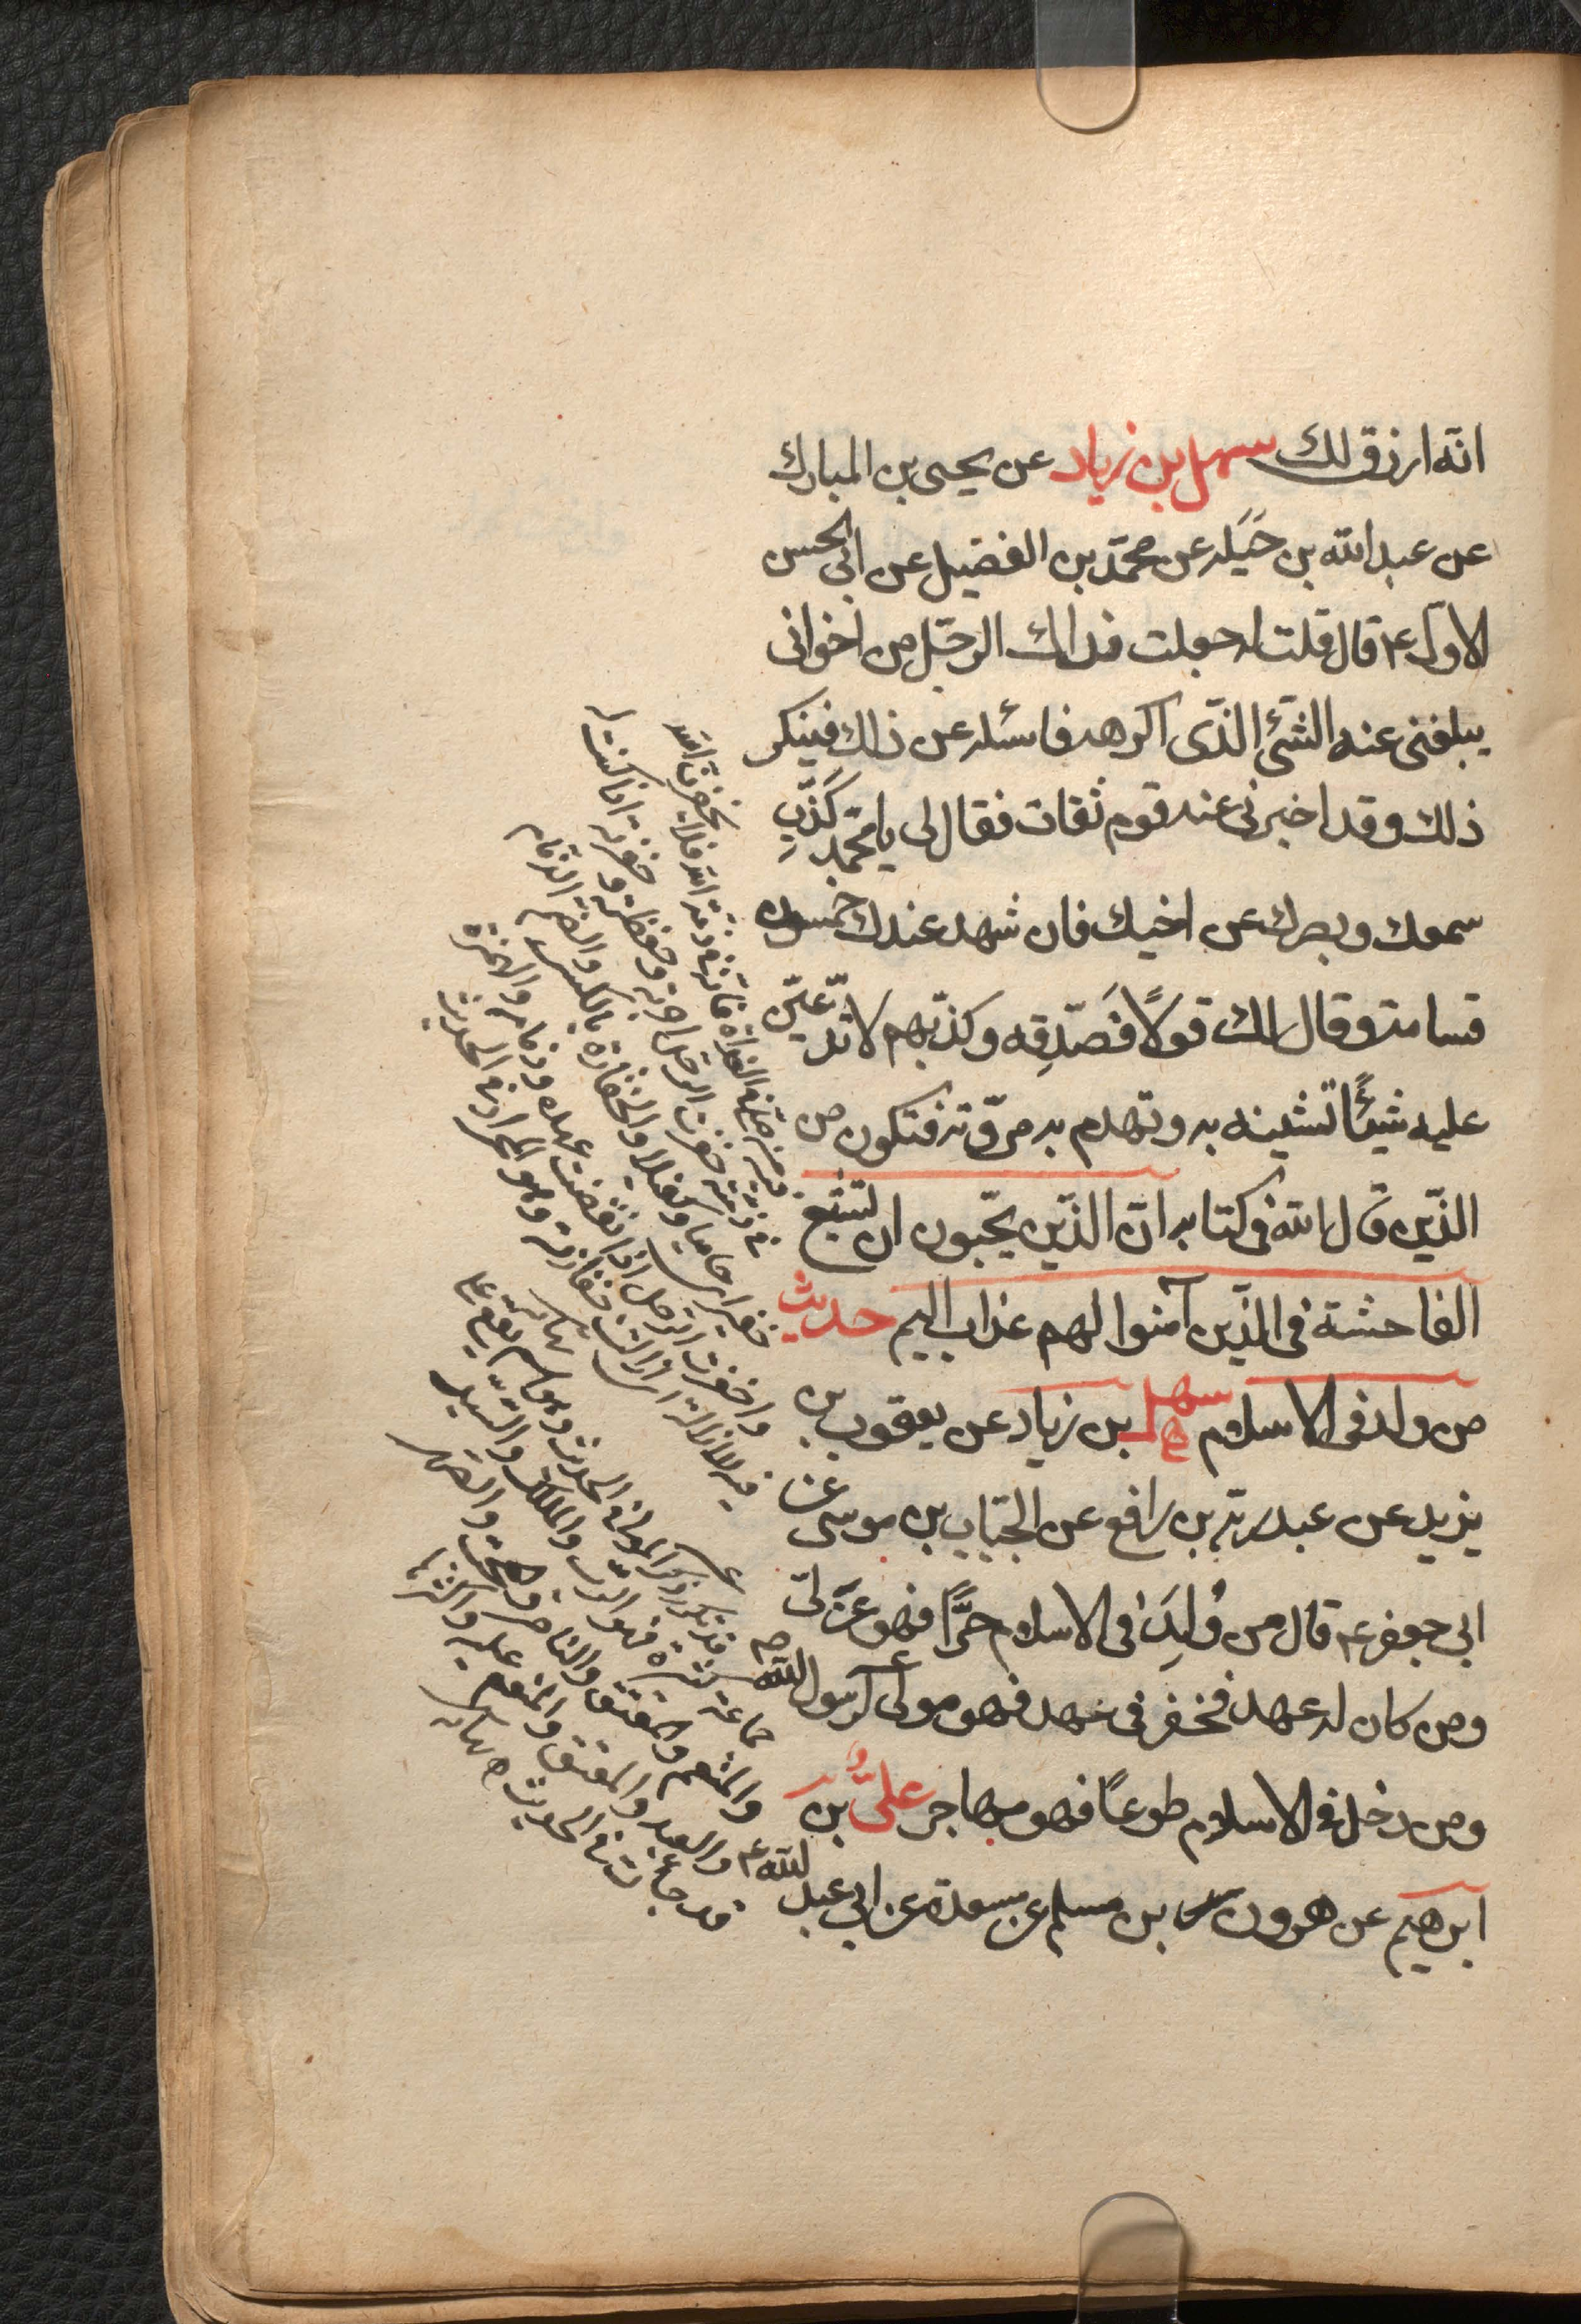 انّه ارزق لك سهل بن زياد عن يحيى بن المبارك
عن عبد الله بن جَبَله عن محمّد بن الفضيل عن ابى الحسن
الاول ع قال قلت له جعلت فداك الرجّل من اخوانى
يبلغنى عنه الشئ الذّى اكرهه فاسئله عن ذلك فينكر
ذلك وقد اخبرنى عنه قوم ثقات فقال لى يا محمّد كَذِّبِ
سمعك وبصرك عن اخيك فان شهد عندك خمسون
قسامة وقال لك قولًا فَصَدِّقِه وكذّبهم لا تذيعَنّ
عليه شيئًا تشينه به وتهدم به مروّته فتكون من
الذّين قال الله فى كتابه انّ الذّين يحّبون ان تشيع
الفاحشة فى الذّين آمنوا لهم عذاب اليم حديث
من ولد فى الاسلام سهل بن زياد عن يعقوب بن
يزيد عن عبد ربّه بن رافع عن الحبّاب بن موسى عن
ابى جعفر ع قال من وُلِدَ فى الاسلام حرًّا فهو عربىّ
ومن كان له عهد فخفر فى عهده فهو مولى لرسول الله ص
ومن دخل فى الاسلام طوعًا فهو مهاجر علىُّ بن
ابرهيم عن هرون بن مسلم عن مسعدة عن ابى عبد الله ع
خفرت الرجل اجرته وحفظته وخفرته اذا كنت له
خفيرا اى حاميا وكفيلا والخفارة بالكسر والضم الذمام
واخفرت الرجل اذا نقضت عهده وذمامه والهمزة
فيه للازالة اى ازالت خفارته وهو المراد فى الحديث
نهاية
قد تكرر ذكر المولى فى الحديث وهو اسم يقع على
جماعة كثيرة فهو الربّ والمالك والسّيد
والمنعم والمعتق والناصر والمحبّ
والعبد والمعتق والمنعم عليه واكثرها
قد جاءت فى الحديث نهاية